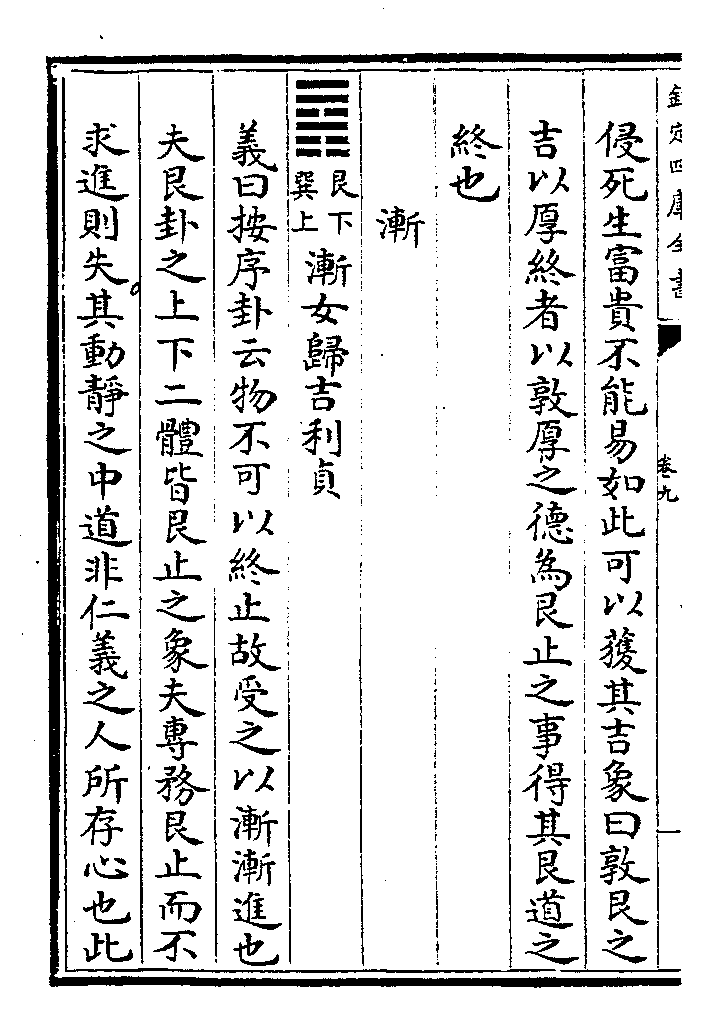 欽定四庫全書
卷九
侵死生富貴不能易如此可以獲其吉象曰敦艮之
吉以厚終者以敦厚之德為艮止之事得其艮道之
終也
漸
䷴艮下巽上漸女歸吉利貞
義曰按序卦云物不可以終止故受之以漸漸進也
夫艮卦之上下二體皆艮止之象夫專務艮止而不
求進則失其動靜之中道非仁義之人所存心也此